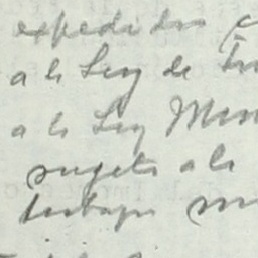 expedidos c
a la Ley de Tra
a la Ley Mun
sugeto a la
trabajo mu